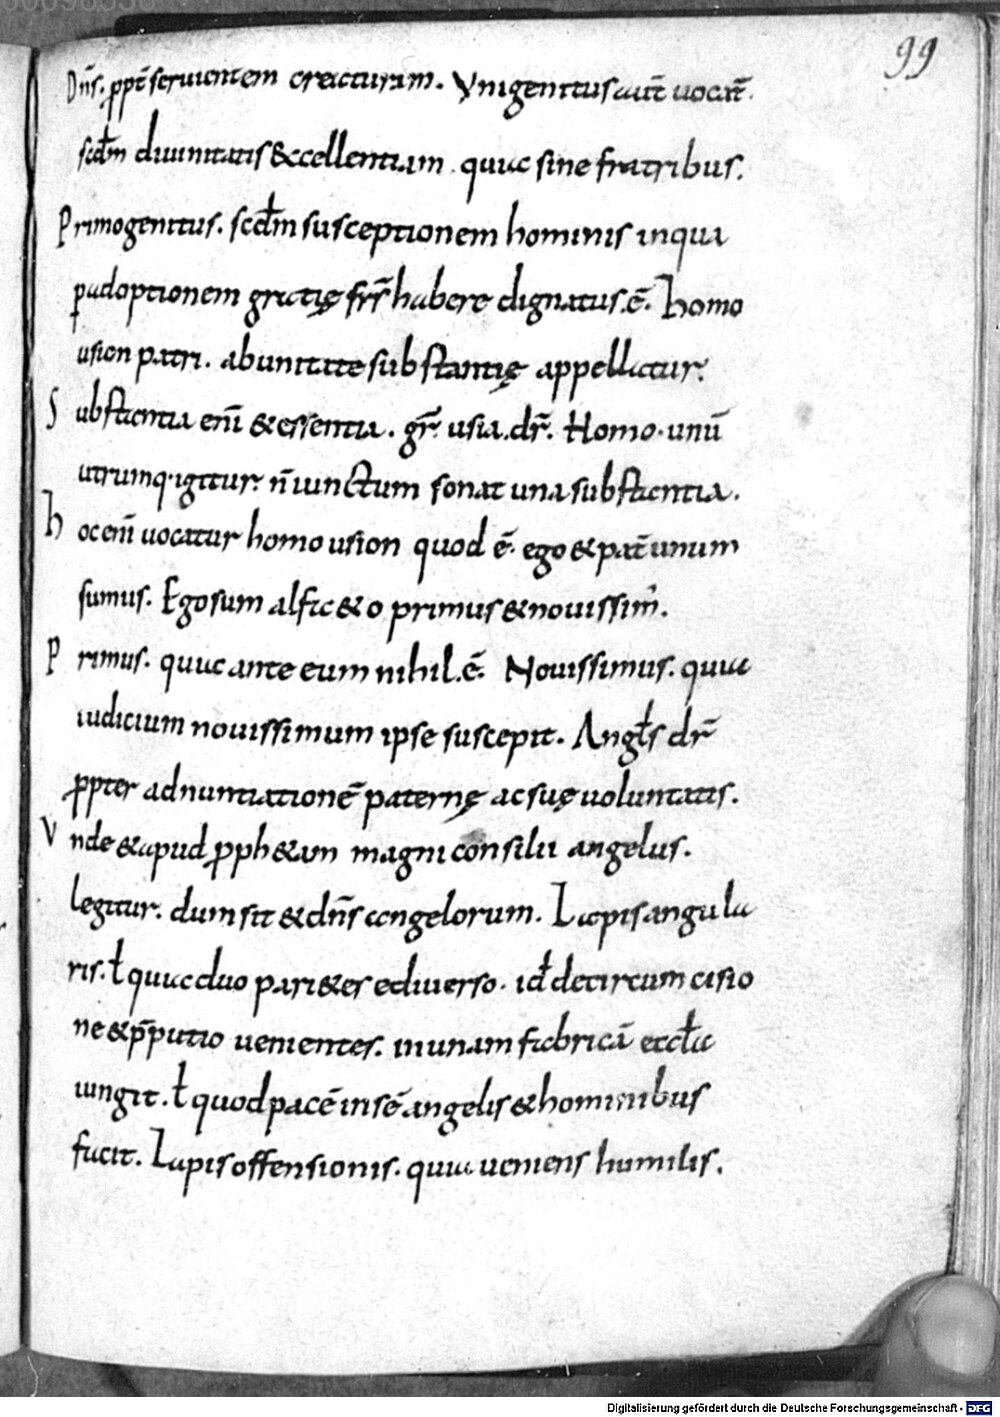 99
Dn̄s. ꝓpt̄ seruientem creaturam. Vnigenitus aut̄ uocat̄.
scd̄m diuinitatis &ccellentiam. quia sine fratribus.
Primogenitus. scd̄m susceptionem hominis inqua
padoptionem gratię fr̄s habere dignatus.ē. Homo
usion patri. abunitate substantię appellatur.
Substantia enī &essentia. gr̄. usia.dr̄. Homo. unū
utrumq. igitur. n̄ iunctum sonat una substantia.
Hoc enī uocatur homo usion quod ē. ego &pat̄ unum
sumus. Ego sum alfa &o primus &nouissim᾽.
Primus. quia ante eum nihil.ē. Nouissimus. quia
iudicium nouissimum ipse suscepit. Angłs dr̄
ꝓpter adnuntiationē paternę ac suę uoluntatis.
Vnde &apud ꝓph&am magni consilii angelus.
legitur. dum sit &dn̄s angelorum. Lapis angula
ris. ł quia duo pari&es ediuerso. id̄ decircum cisio
ne &p̄putio uenientes. inunam fabricā eccła
iungit. ł quod pacē insē angelis &hominibus
facit. Lapis offensionis. quia ueniens humilis.
Digitalisierung gefördert durch die Deutsche Forschungsgemeinschaft - DFG